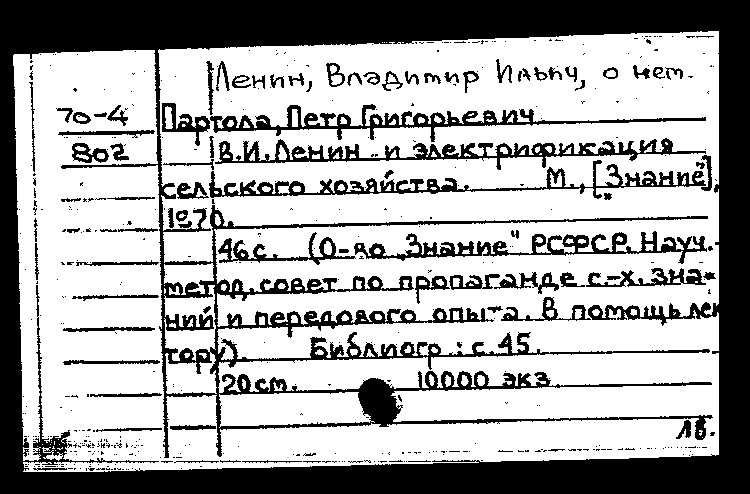 Ленин, Владимир Ильич, о нем.
70-4 Партола, Петр Григорьевич
802 В.И.Ленин и электрификация
сельского хозяйства. М., ["Знание"],
1970.
46 с. (О-во "Знание" РСФСР. Науч.-
метод. совет по пропаганде с.-х. зна=
ний и передового опыта. В помощь лек
тору). Библиогр.: с. 45.
20 см. 10000 экз.